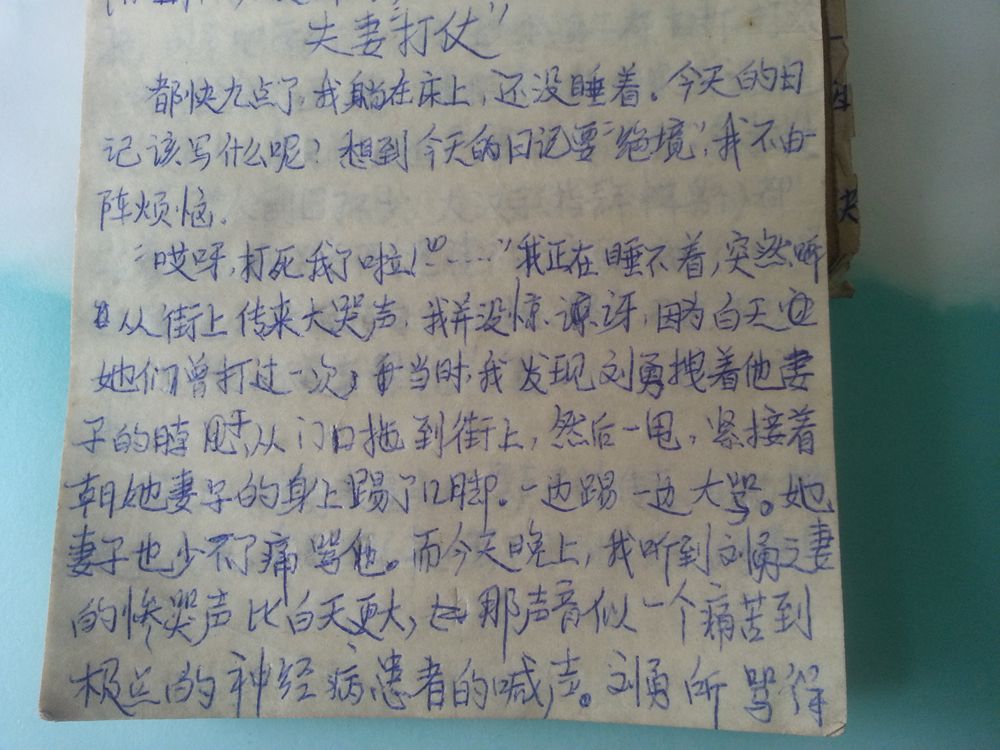 夫妻打仗”
都快九点了,我躺在床上,还没睡着。今天的日
记该写什么呢?想到今天的日记要“绝境”,我不由一
阵烦恼。
“哎呀,打死我了啦!……”我正在睡不着,突然听
从街上传来大哭声,我并没惊讶,因为白天
她们曾打过一次,当时,我发现刘勇拽着他妻
子的脖子,从门口拖到街上,然后一甩,紧接着
朝她妻子的身上踢了几脚。一边踢一边大骂。她
妻子也少不了痛骂他。而今天晚上,我听到刘勇之妻
的惨哭声比白天更大,那声音似一个痛苦到
极点的神经病患者的喊声。刘勇所骂得